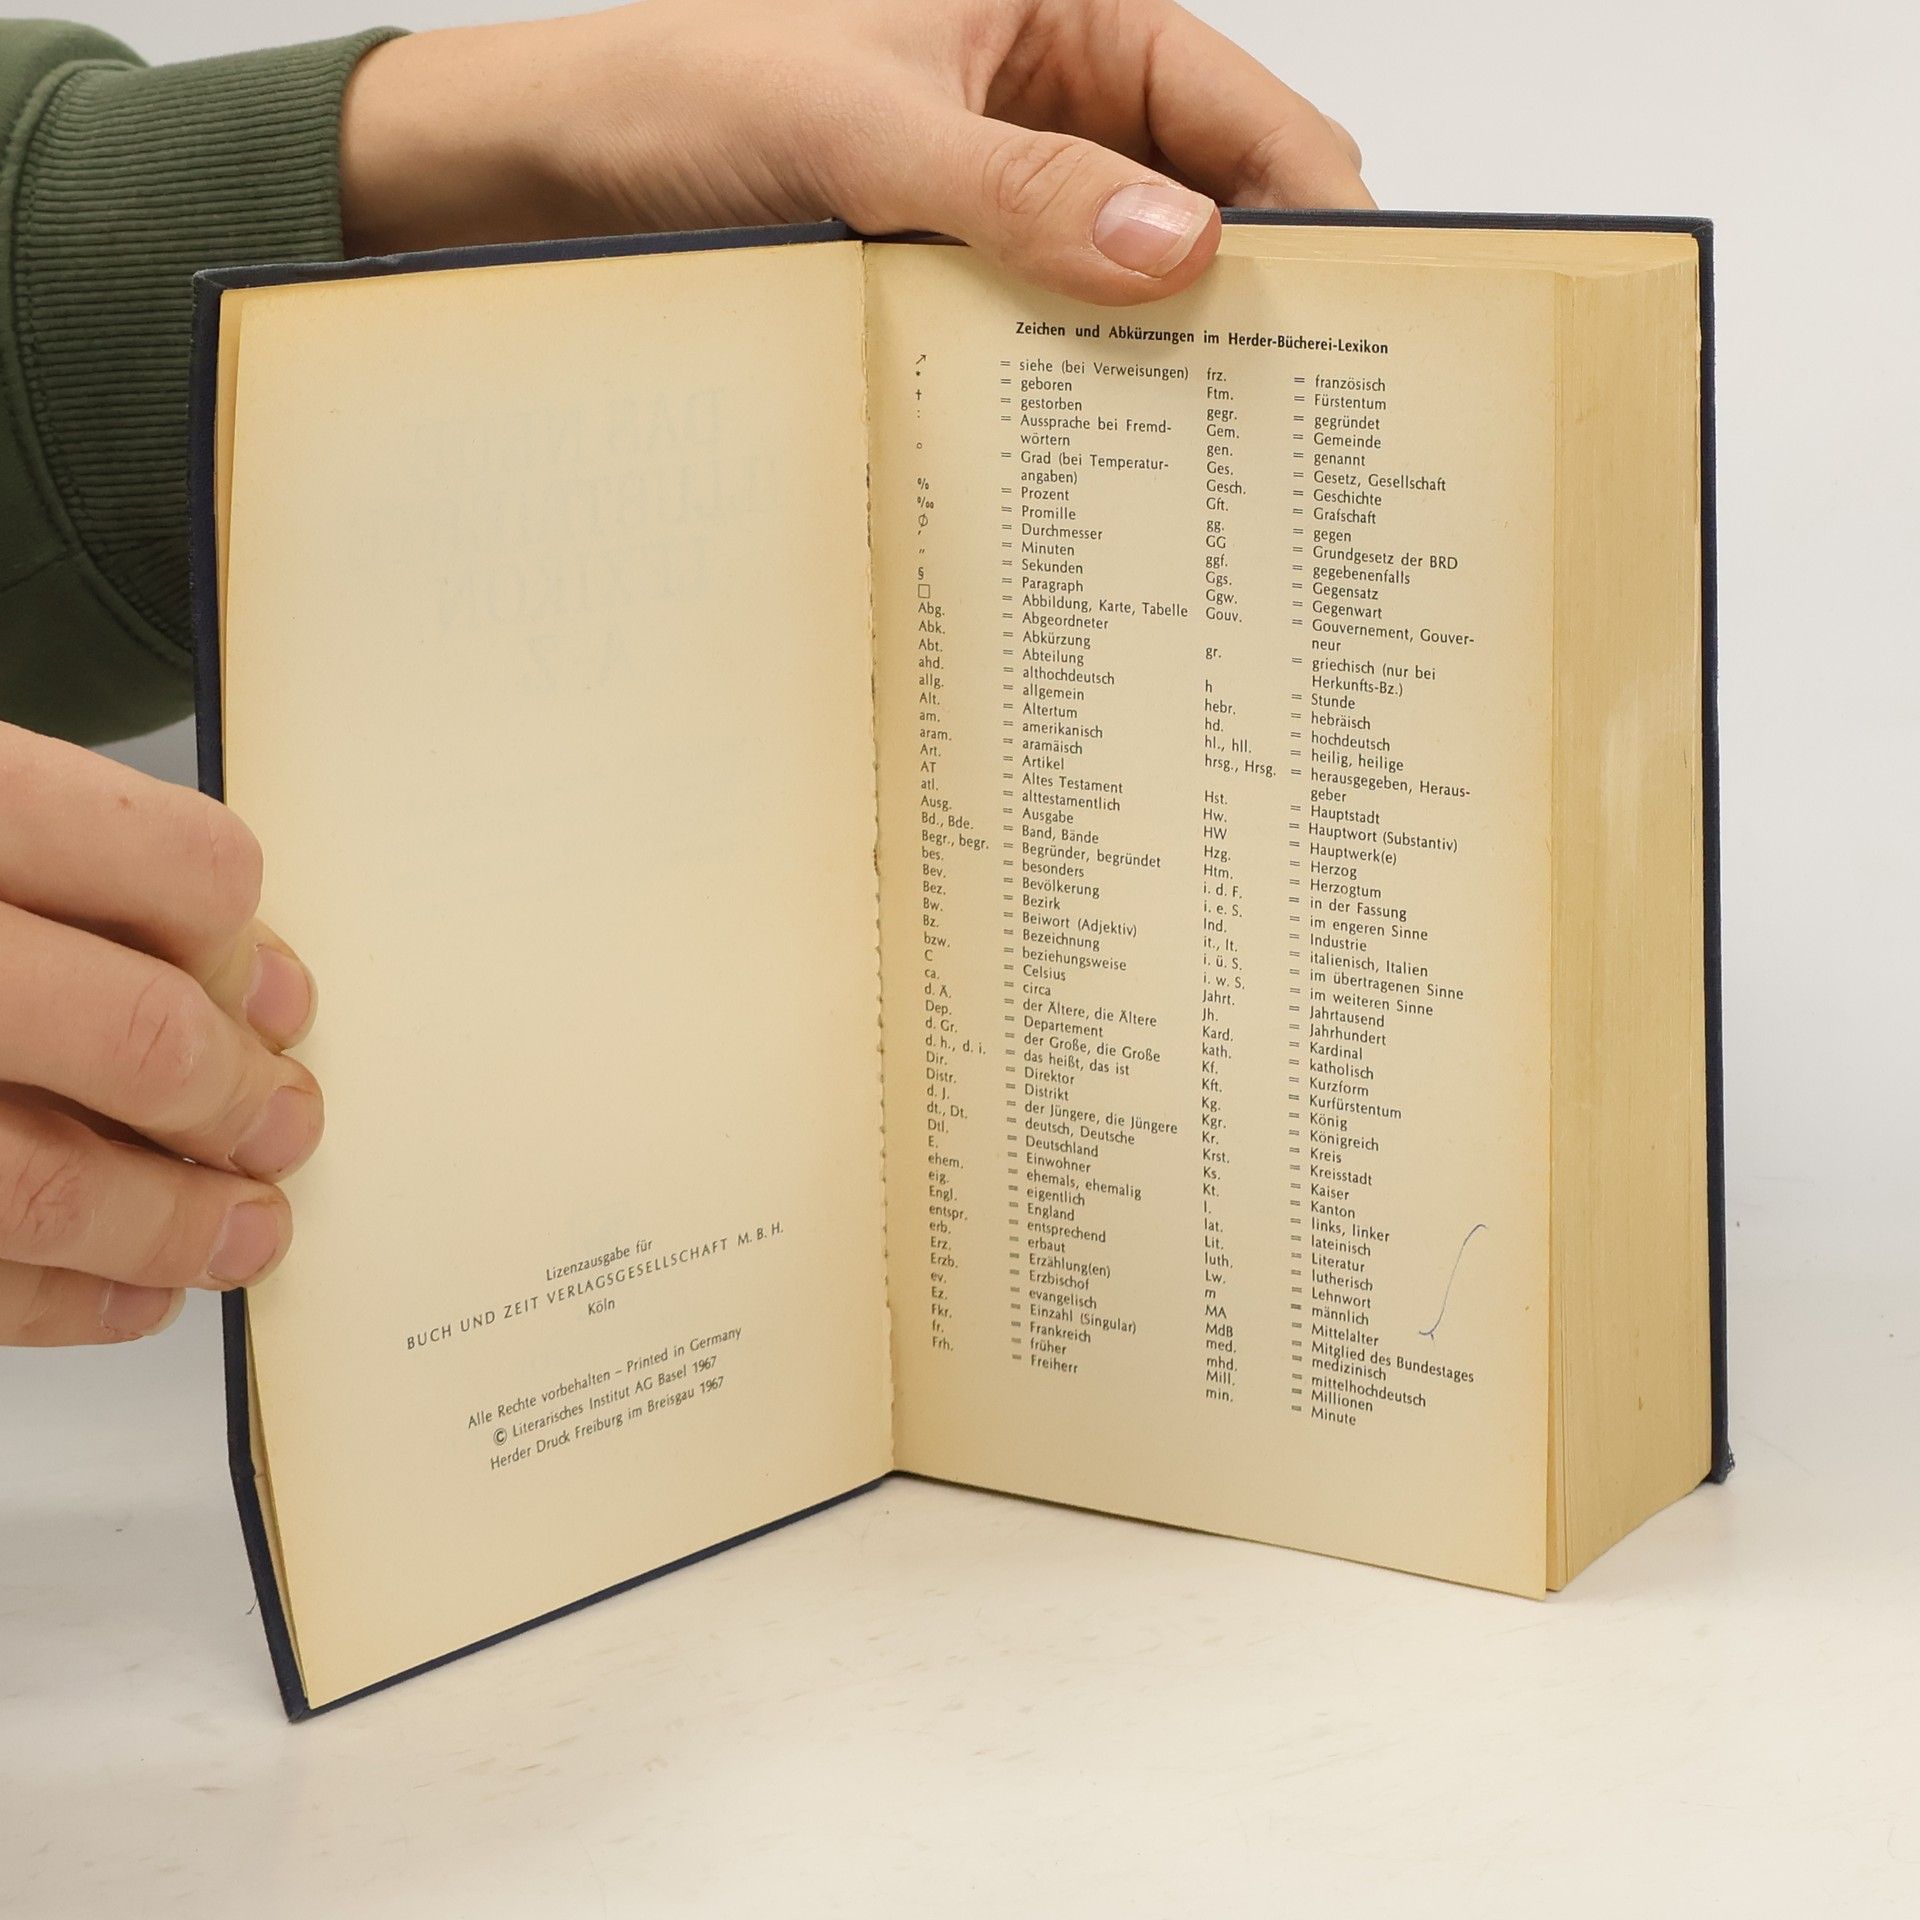 Lizenzausgabe für
BUCH UND ZEIT VERLAGSGESELLSCHAFT M. B. H.
Köln
Alle Rechte vorbehalten – Printed in Germany
© Literarisches Institut AG Basel 1967
Herder Druck Freiburg im Breisgau 1967
Zeichen und Abkürzungen im Herder-Bücherei-Lexikon
↗ = siehe (bei Verweisungen)
* = geboren
† = gestorben
: = Aussprache bei Fremd-
wörtern
° = Grad (bei Temperatur-
angaben)
% = Prozent
‰ = Promille
∅ = Durchmesser
′ = Minuten
″ = Sekunden
§ = Paragraph
□ = Abbildung, Karte, Tabelle
Abg. = Abgeordneter
Abk. = Abkürzung
Abt. = Abteilung
ahd. = althochdeutsch
allg. = allgemein
Alt. = Altertum
am. = amerikanisch
aram. = aramäisch
Art. = Artikel
AT = Altes Testament
atl. = alttestamentlich
Ausg. = Ausgabe
Bd., Bde. = Band, Bände
Begr., begr. = Begründer, begründet
bes. = besonders
Bev. = Bevölkerung
Bez. = Bezirk
Bw. = Beiwort (Adjektiv)
Bz. = Bezeichnung
bzw. = beziehungsweise
C = Celsius
ca. = circa
d. Ä. = der Ältere, die Ältere
Dep. = Departement
d. Gr. = der Große, die Große
d. h., d. i. = das heißt, das ist
Dir. = Direktor
Distr. = Distrikt
d. J. = der Jüngere, die Jüngere
dt., Dt. = deutsch, Deutsche
Dtl. = Deutschland
E. = Einwohner
ehem. = ehemals, ehemalig
eig. = eigentlich
Engl. = England
entspr. = entsprechend
erb. = erbaut
Erz. = Erzählung(en)
Erzb. = Erzbischof
ev. = evangelisch
Ez. = Einzahl (Singular)
Fkr. = Frankreich
fr. = früher
Frh. = Freiherr
frz. = französisch
Ftm. = Fürstentum
gegr. = gegründet
Gem. = Gemeinde
gen. = genannt
Ges. = Gesetz, Gesellschaft
Gesch. = Geschichte
Gft. = Grafschaft
gg. = gegen
GG = Grundgesetz der BRD
ggf. = gegebenenfalls
Ggs. = Gegensatz
Ggw. = Gegenwart
Gouv. = Gouvernement, Gouver-
neur
gr. = griechisch (nur bei
Herkunfts-Bz.)
h = Stunde
hebr. = hebräisch
hd. = hochdeutsch
hl., hll. = heilig, heilige
hrsg., Hrsg. = herausgegeben, Heraus-
geber
Hst. = Hauptstadt
Hw. = Hauptwort (Substantiv)
HW = Hauptwerk(e)
Hzg. = Herzog
Htm. = Herzogtum
i. d. F. = in der Fassung
i. e. S. = im engeren Sinne
Ind. = Industrie
it., It. = italienisch, Italien
i. ü. S. = im übertragenen Sinne
i. w. S. = im weiteren Sinne
Jahrt. = Jahrtausend
Jh. = Jahrhundert
Kard. = Kardinal
kath. = katholisch
Kf. = Kurzform
Kft. = Kurfürstentum
Kg. = König
Kgr. = Königreich
Kr. = Kreis
Krst. = Kreisstadt
Ks. = Kaiser
Kt. = Kanton
l. = links, linker
lat. = lateinisch
Lit. = Literatur
luth. = lutherisch
Lw. = Lehnwort
m = männlich
MA = Mittelalter
MdB = Mitglied des Bundestages
med. = medizinisch
mhd. = mittelhochdeutsch
Mill. = Millionen
min. = Minute